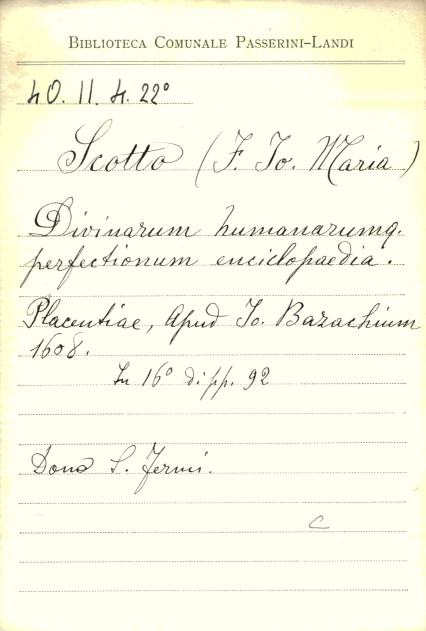 BIBLIOTECA COMUNALE PASSERINI-LANDI
40. II. 4. 22°
Scotto (F. Jo. Maria)
Divinarum humanarumq.
perfectionum enciclopaedia.
Placentiae, Apud Jo. Bazachium
1608.
In 16° di pp. 92
Dono S. Fermi.
C